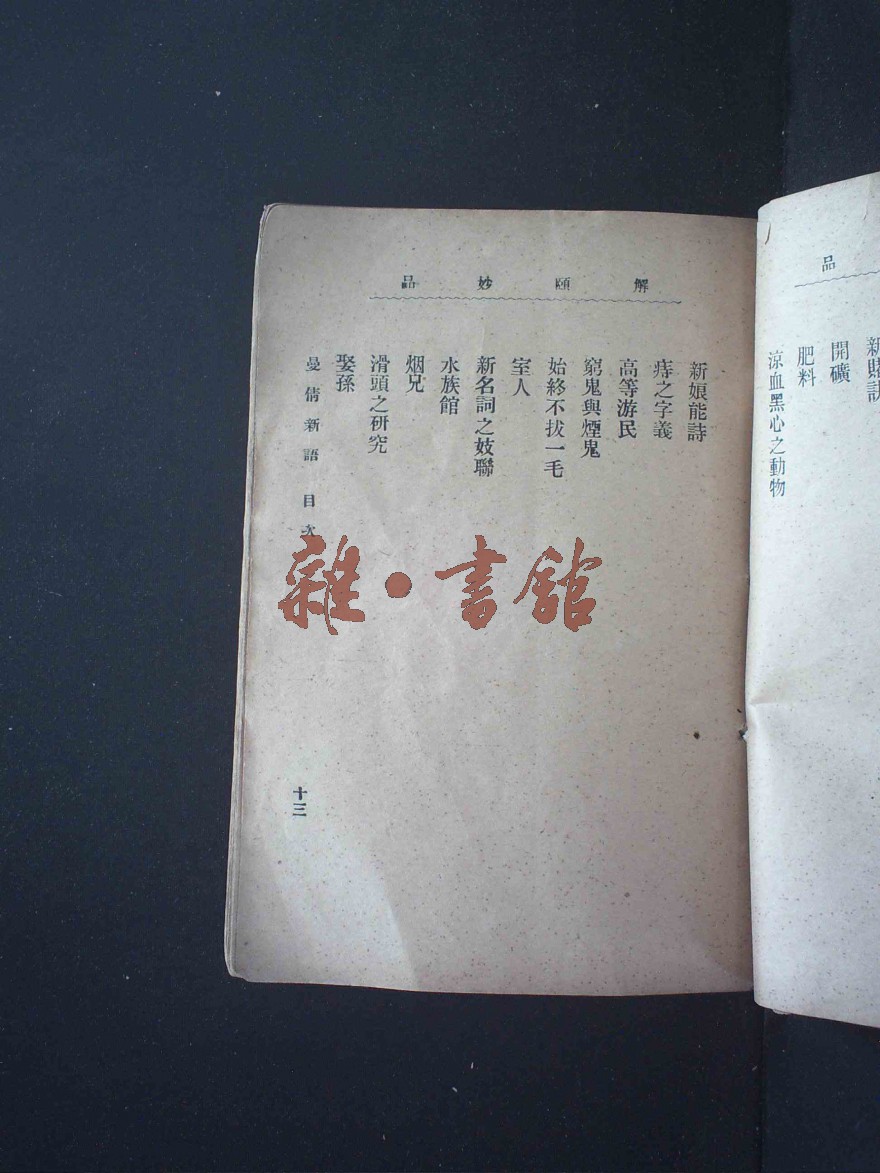 品
新賭訣
開礦
肥料
涼血黑心之動物
解頤妙品
新娘能詩
痔之字義
高等游民
窮鬼與煙鬼
始終不拔一毛
室人
新名詞之妓聯
水族館
烟兄
滑頭之研究
娶孫
曼倩新語 目次
十三
雜·書館